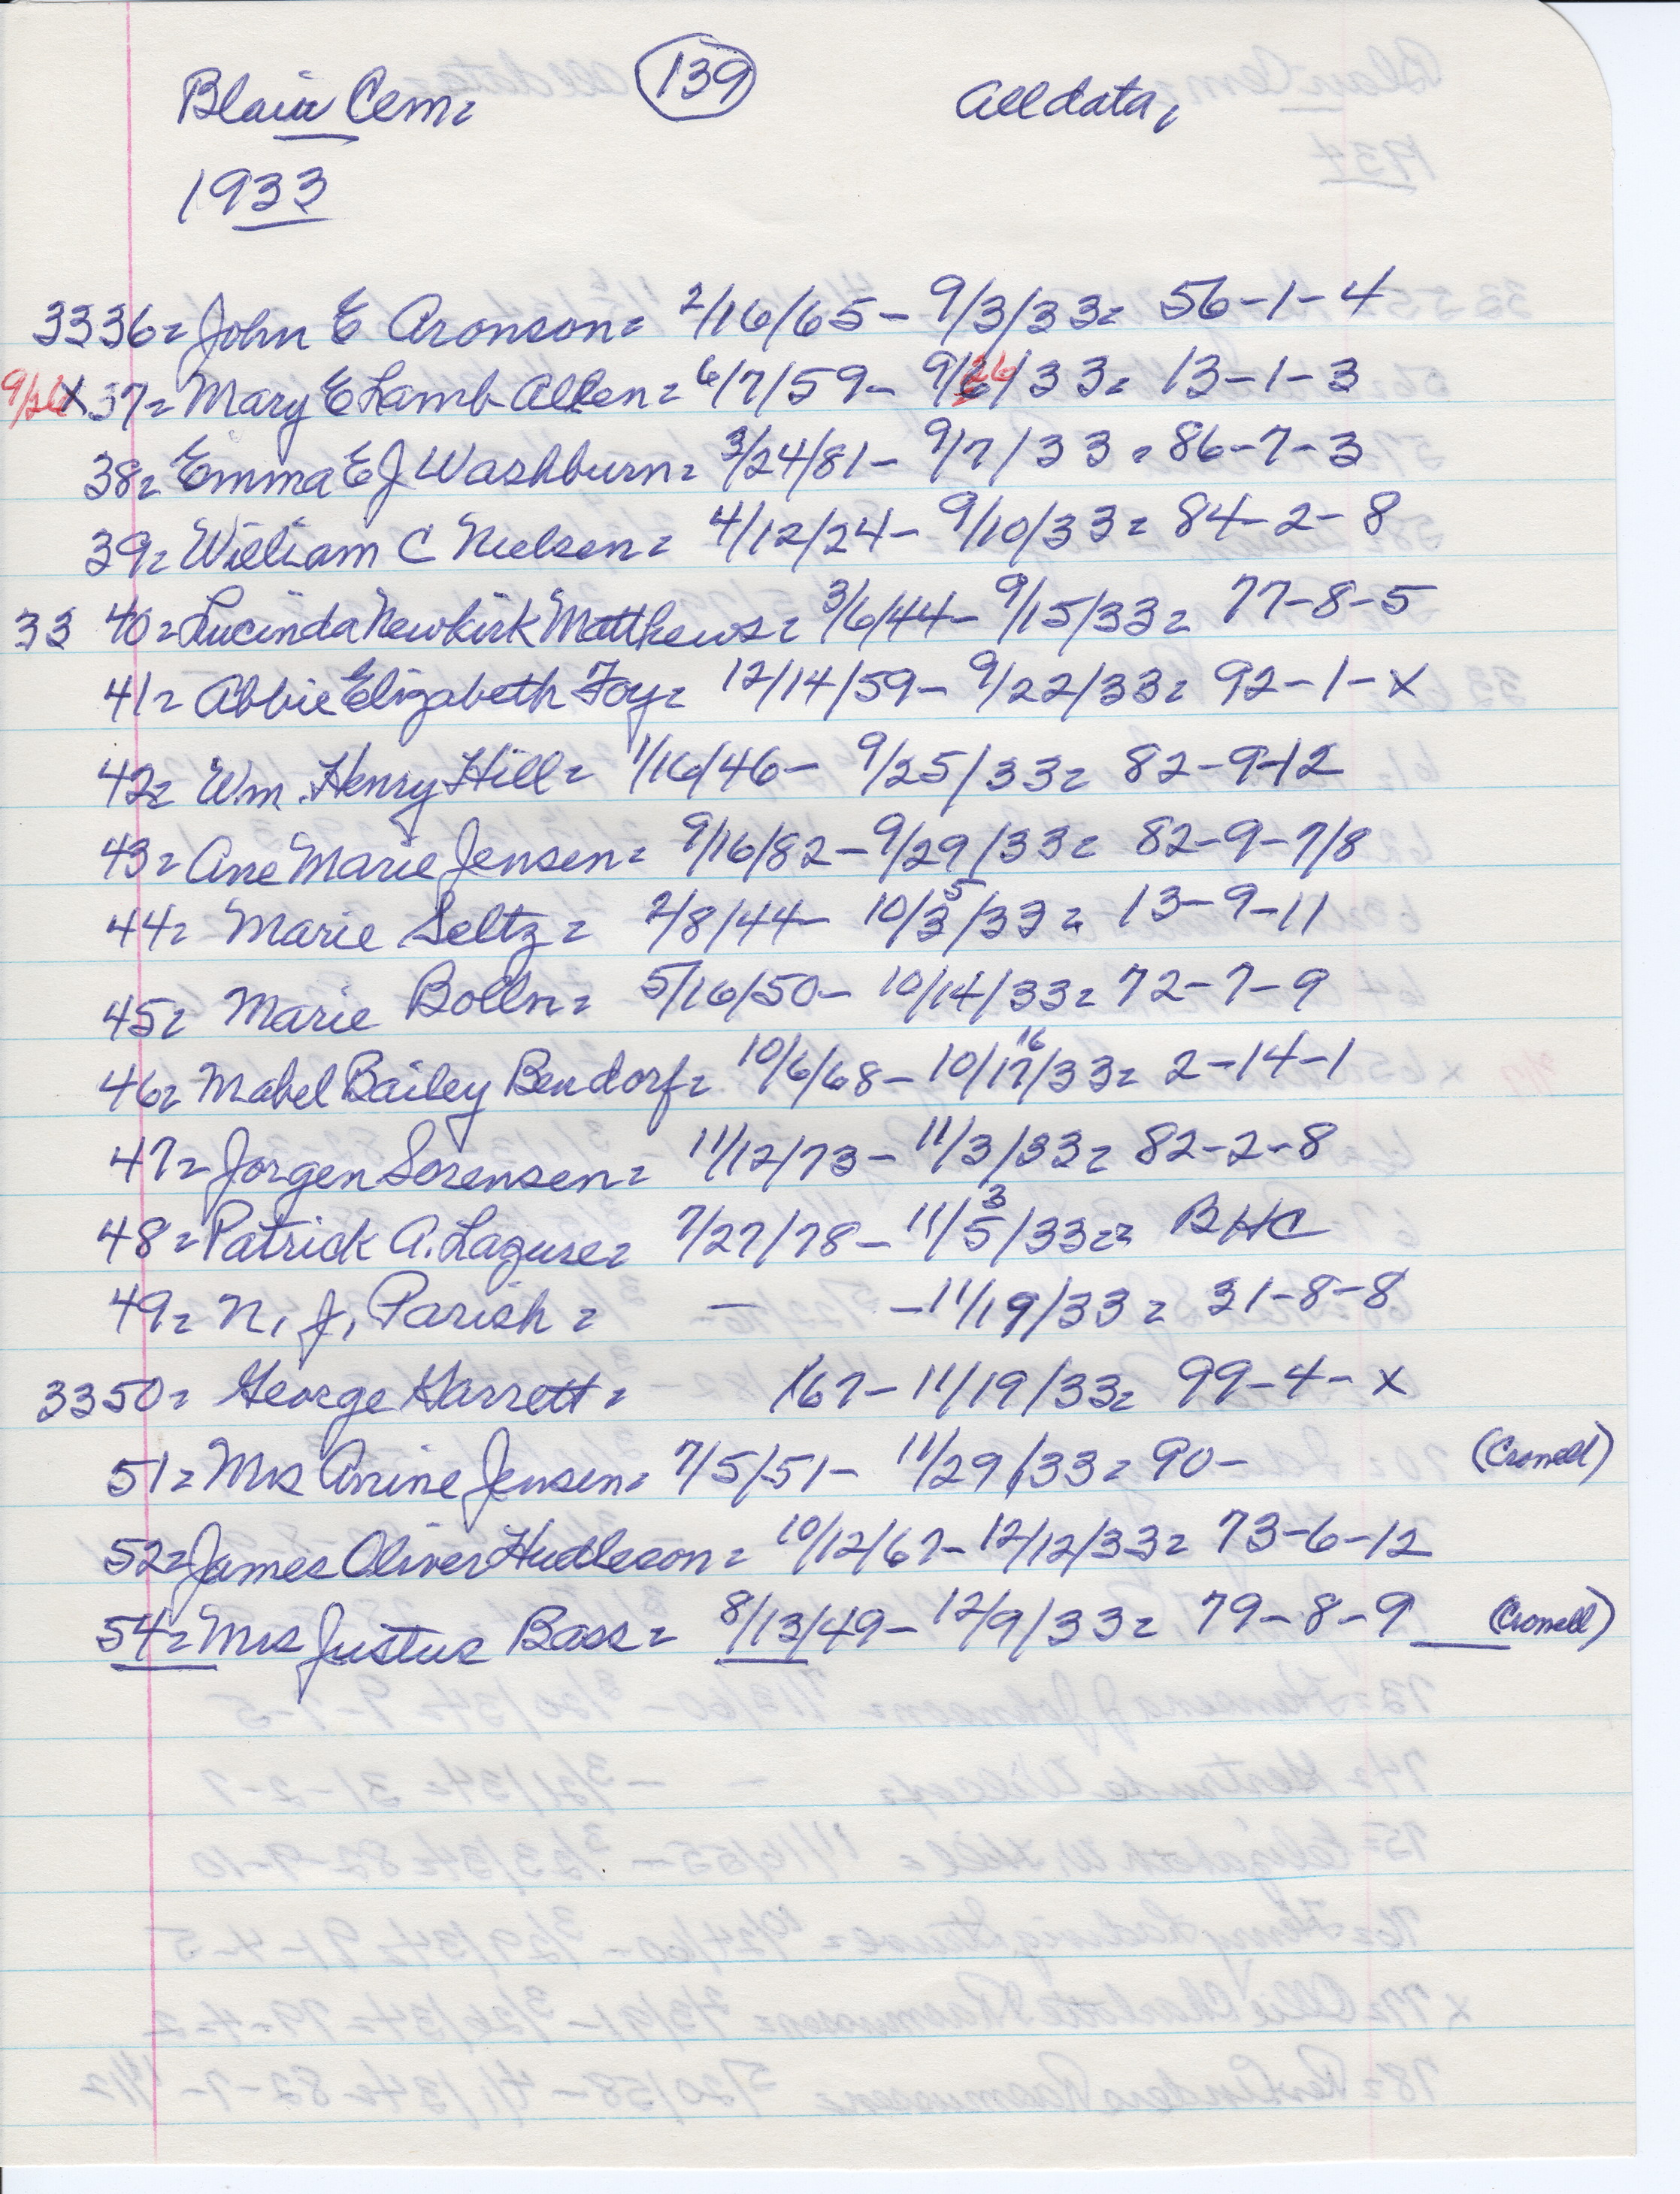 Blair Cem= 139 All data,
1933
3336= John E Aronson= 2/16/65 - 9/3/33= 56-1-4
9/26 X 37= Mary E Lamb Allen= 6/7/59- 9/26/33= 13-1-3
38= Emma E J Washburn= 3/24/81- 9/7/33= 86-7-3
39= William C Nielsen= 4/12/24- 9/10/33= 84-2-8
33 40= Lucinda Newkirk Matthews= 3/6/44- 9/15/33= 77-8-5
41= Abbie Elizabeth Foy= 12/14/59- 9/22/33= 92-1-x
42= Wm. Henry Hill= 1/16/46- 9/25/33= 82-9-12
43= Ane Marie Jensen= 9/16/82-9/29/33= 82-9-7/8
44= Marie Seltz= 2/8/44- 10/3 5/33= 13-9-11
45= Marie Bolln= 5/16/50- 10/14/33= 72-7-9
46= Mabel Bailey Bendorf= 10/6/68- 10/17 16/33= 2-14-1
47= Jorgen Sorensen= 11/12/73- 11/3/33= 82-2-8
48= Patrick A. Lazure= 7/27/78- 11/5 3/33== BHC
49= N, J, Parish= - -11/19/33= 31-8-8
3350= George Garrett= /67- 11/19/33= 99-4-x
51= Mrs Anine Jensen= 7/5/51- 11/29/33= 90- (Cronell)
52= James Oliver Hudleson= 10/12/67- 12/12/33= 73-6-12
54= Mrs Justus Bass= 8/13/49- 12/9/33= 79-8-9 (Cronell)